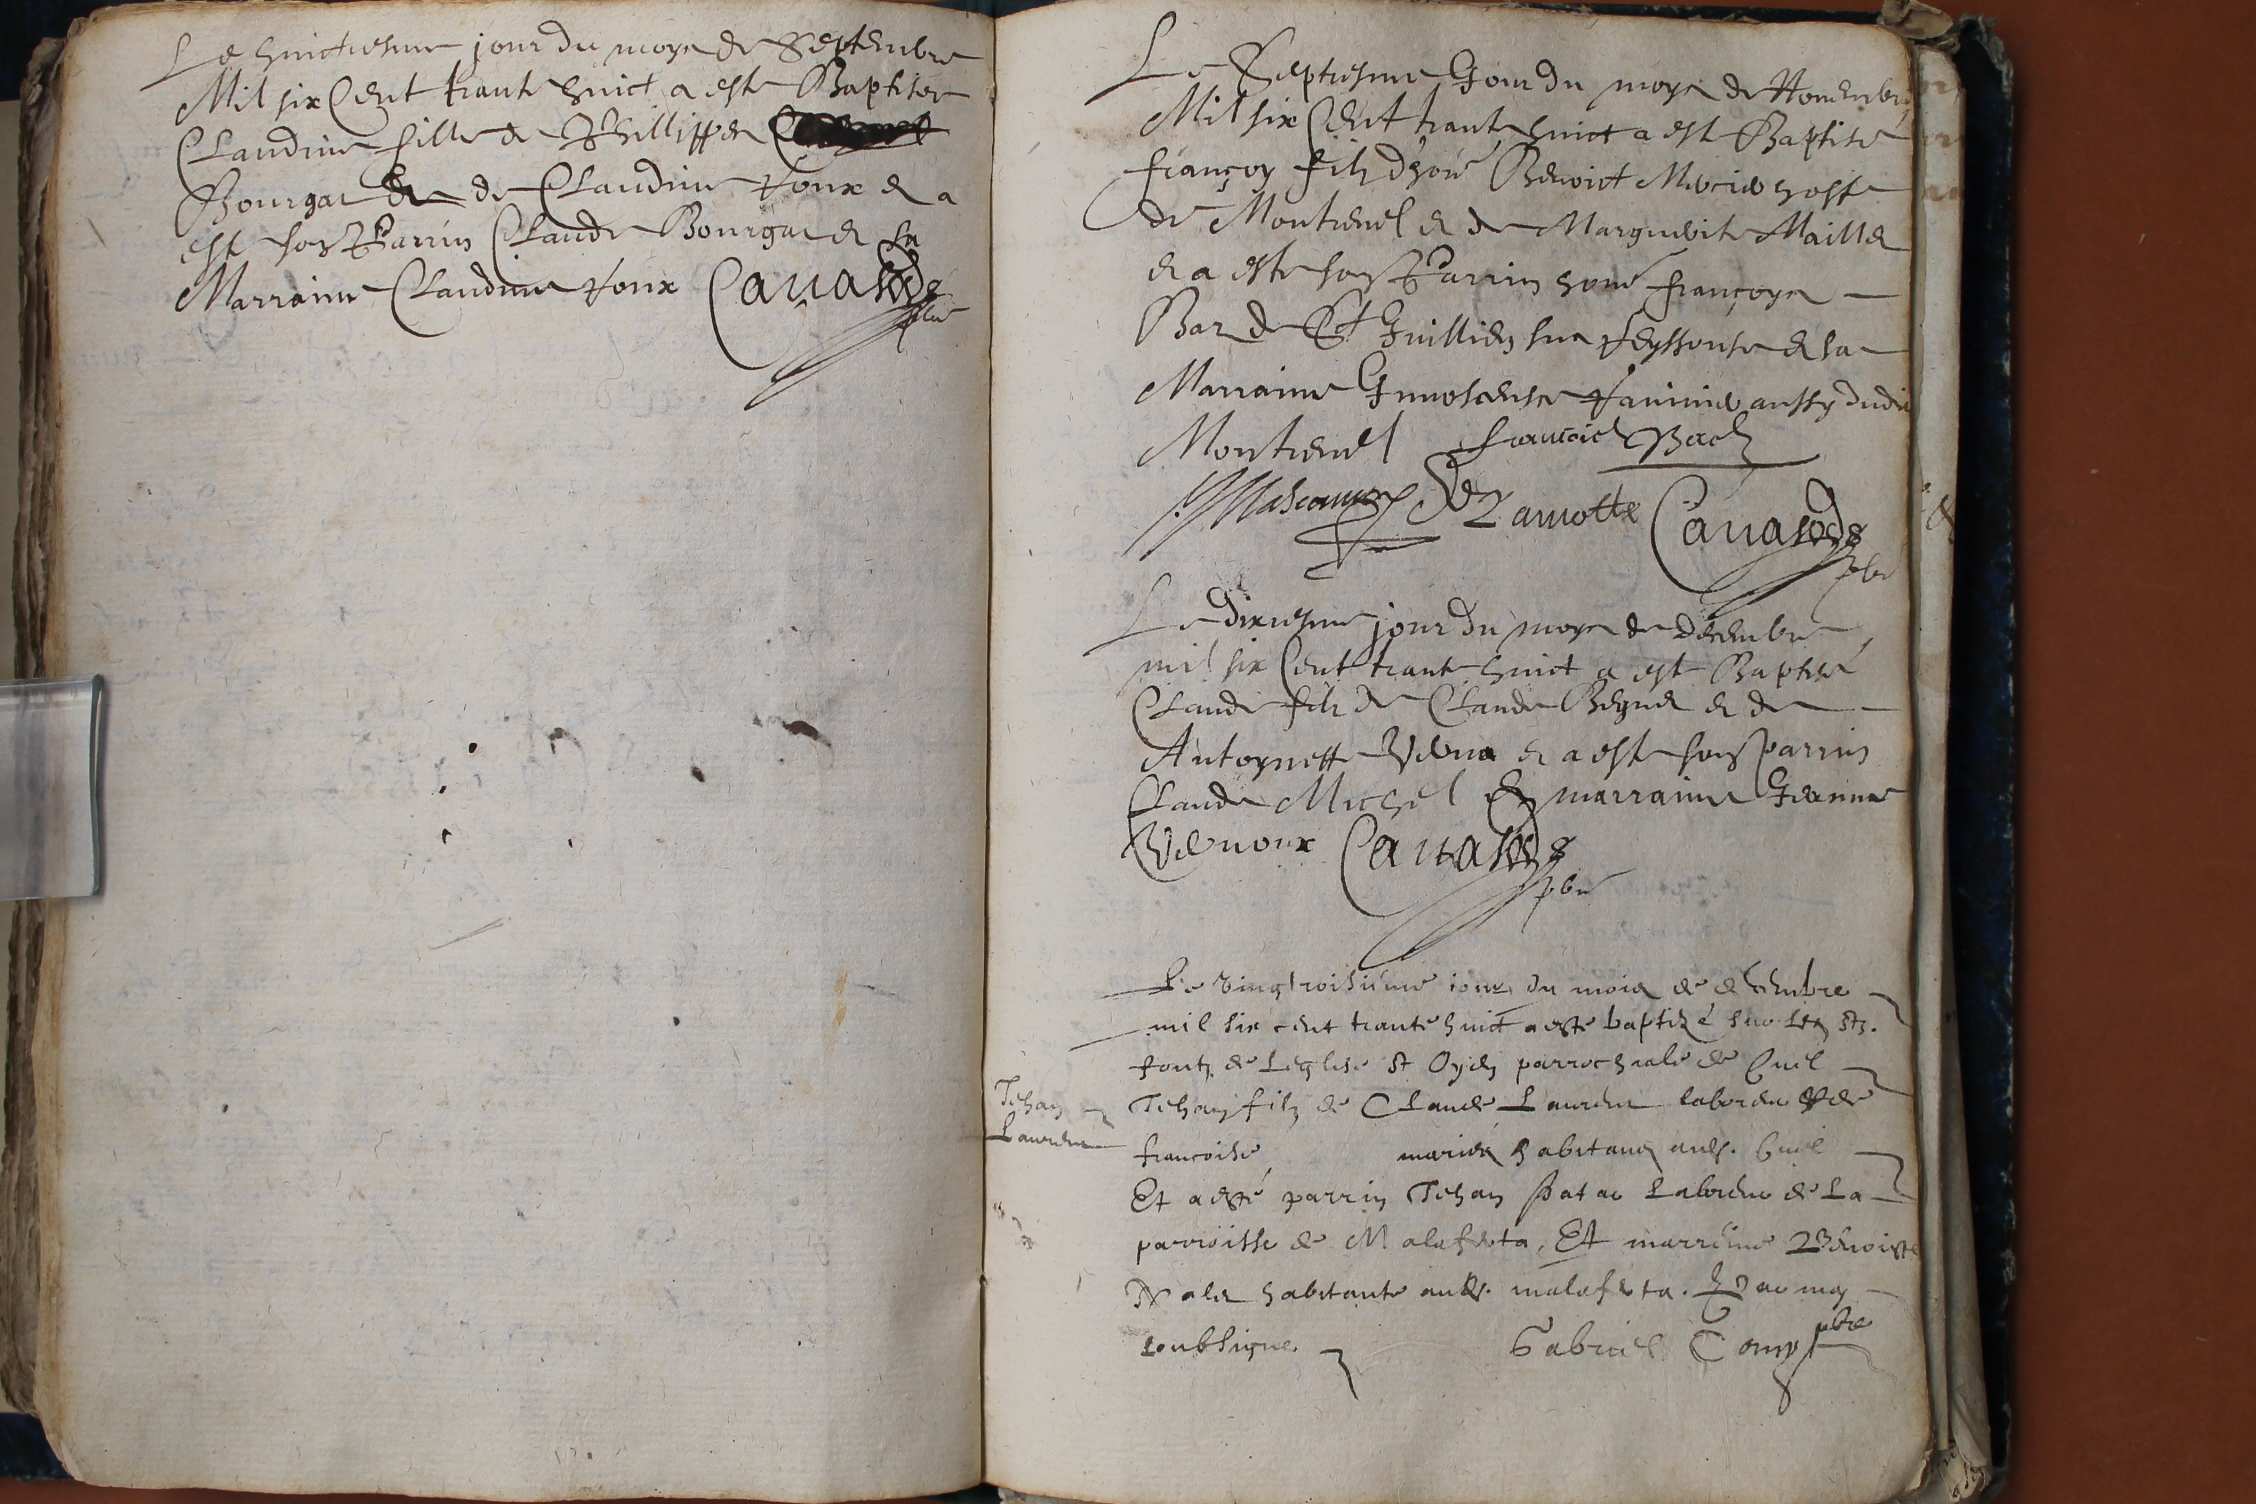 Le huictiesme jour du moys de Septembre
Mil six Cent trante huict a este Baptisee
Claudine fille de Phillippe
Bourgat de Claudine Joux et a
este son Parrin Claude Bourgat et sa
Marraine Claudine Joux
pbre
Le Septiesme Jour du moys de Novembre
Mil six Cent trante huict a este Baptisé
françoy filz d'honé Benoict Mercier hoste
de Montrevel et de Marguerite Maillet
et a este son Parrin honé françoys
Bar de St Jullien sur Reyssouse et sa
Marraine Innosense aussy dudit
Montrevel francois
Lamotte
pbre
Le dixiesme jour du moys de decembre
mil six Cent trante huict a este Baptisé
Claude filz de Claude et de
Antoynette et a este son parrin
Claude Michel et marraine Jeanne
pbre
Le vingtroisiéme iour du mois de decembre
mil six cent trante huict a esté baptizé sur les sts.
fontz de Leglise St Oyen parrochiale de Cuel
Jehan filz de Claude Laurent laboreur et de
francoise mariés habitans auds. Cuel
Et a esté parrin Jehan Laboreur de La
parroisse de Malafreta, Et marreine Benoiste
habitante auds. malafreta. Par moy
soubsigne. Gabriel pbre
Jehan
Laurent